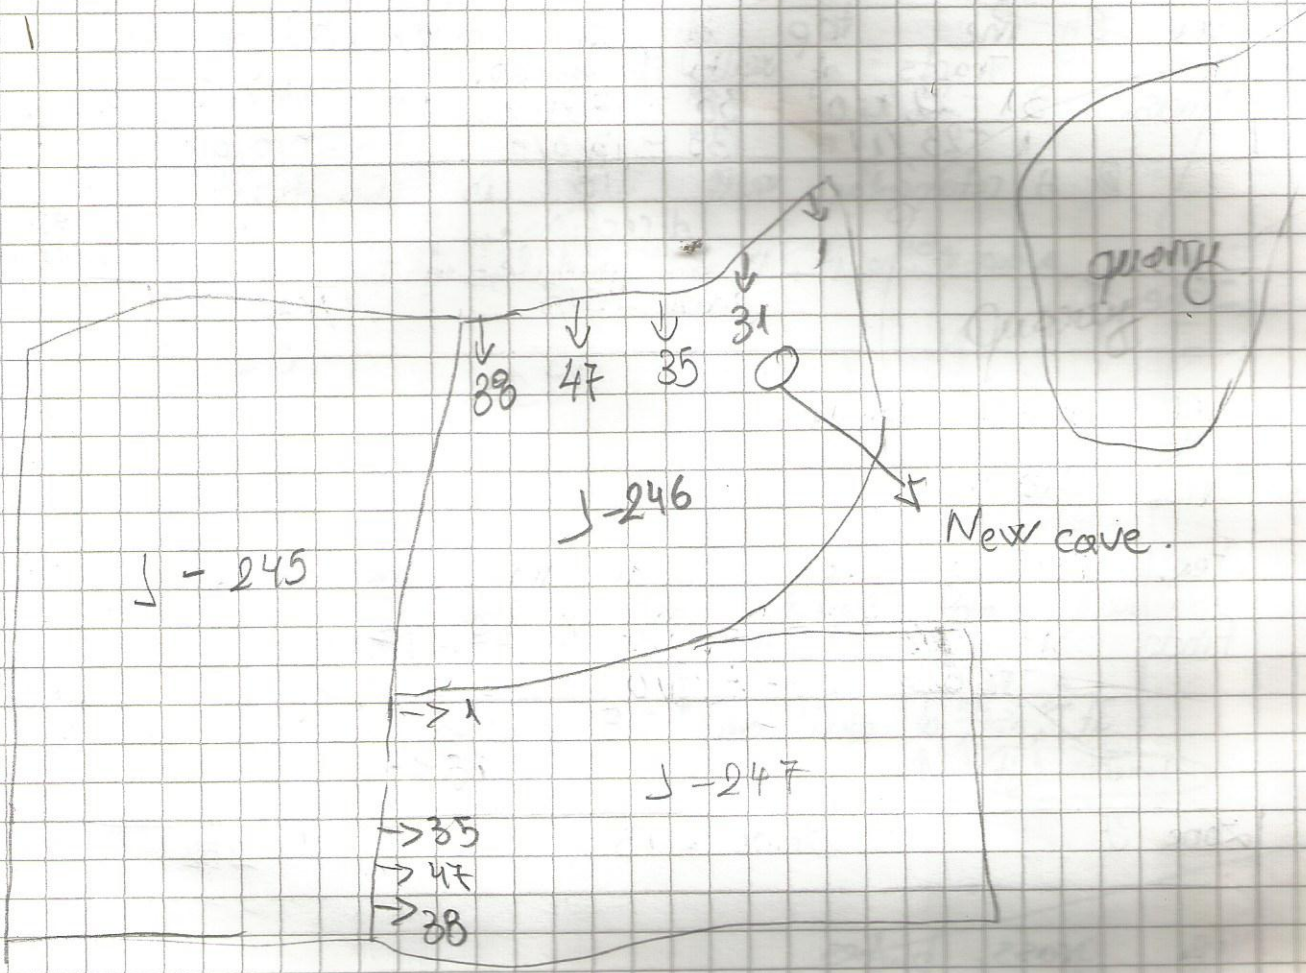 1
31
38 47 35
J-246
New cave.
J - 245
→ 1
J-247
→ 35
→ 47
→ 38